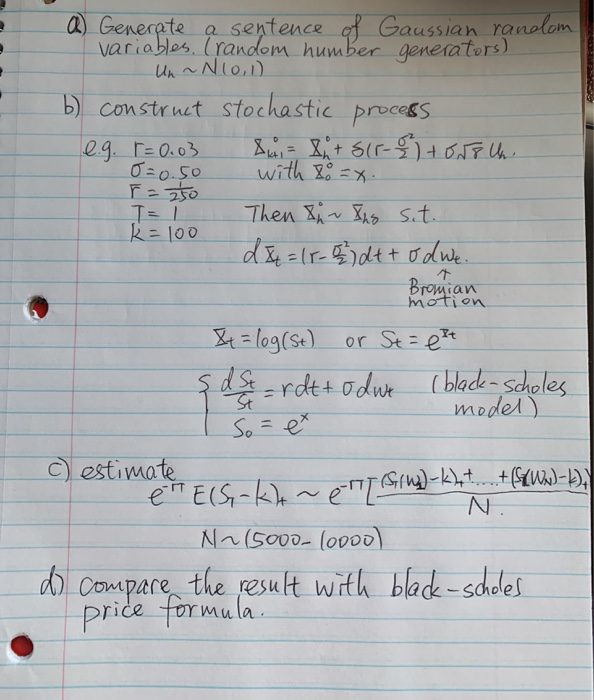 a) Generate a sentence of Gaussian random
variables. (random number generators)
Un ~ N(0,1)
b) construct stochastic process
e.g. r=0.03 X°k+1 = X°n + δ(r-σ²/2) + σ√δ Un.
σ=0.50 with X°0 = x.
F = 1/250
T = 1 Then X°n ~ Xnδ s.t.
k = 100
dXt = (r-σ²/2)dt + σdwt.
↑
Bromian
motion
Xt = log(St) or St = e^Xt
{ dSt/St = rdt + σdwt (black-scholes
S0 = e^x model)
c) estimate
e^-rT E(ST-k)+ ~ e^-rT [(ST(W1)-k)+ + .... + (ST(WN)-k)+]/N.
N~(5000-10000)
d) compare the result with black-scholes
price formula.